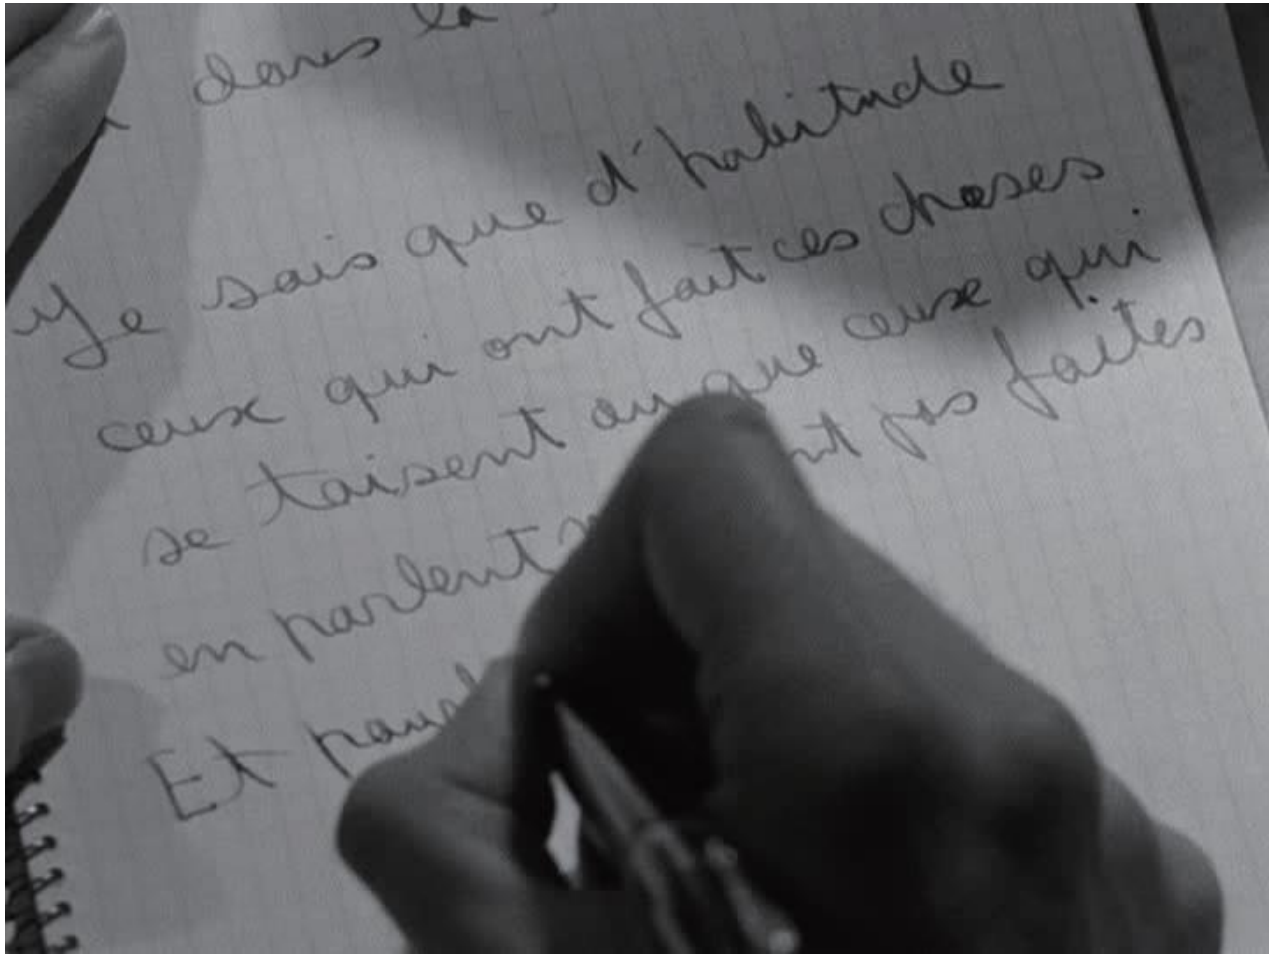 dans la
Je sais que d'habitude
ceux qui ont fait ces choses
se taisent ou que ceux qui
en parlent pas faites
Et